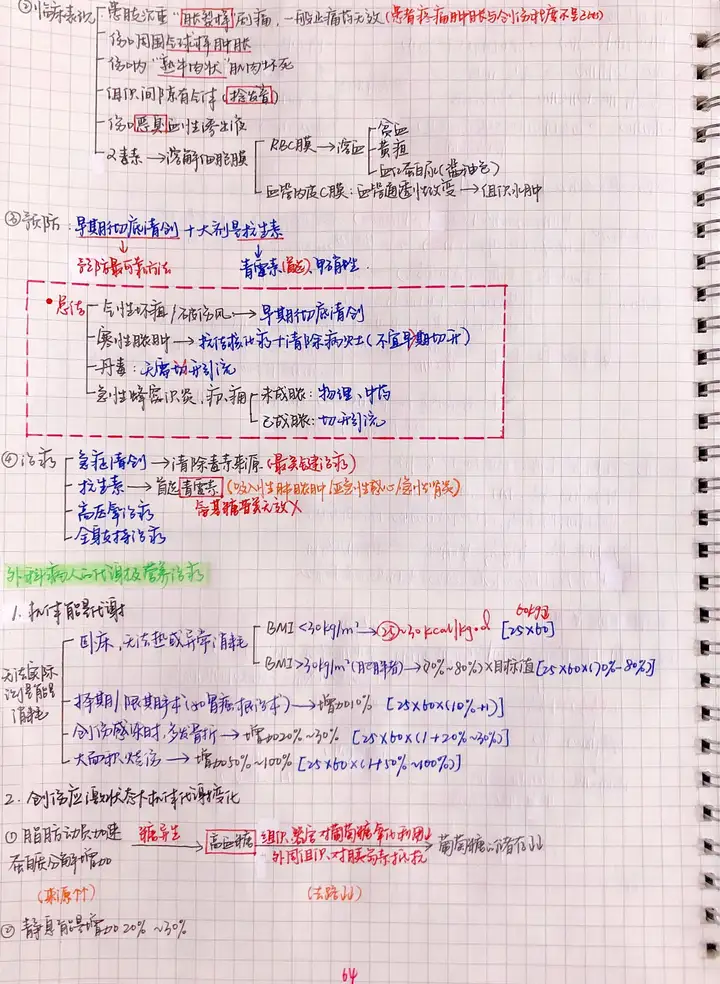 ②临床表现 患肢沉重"胀裂样"剧痛,一般止痛药无效(患者疼痛肿胀与创伤程度不呈正比)
伤口周围红肿样肿胀
伤口内"熟牛肉状"肌肉坏死
组织间隙有气体(捻发音)
伤口恶臭血性渗出液
α毒素→溶解细胞膜 RBC膜→溶血 贫血
黄疸
血红蛋白尿(酱油色)
血管内皮C膜:血管通透性改变→组织水肿
③预防:早期彻底清创+大剂量抗生素
预防最可靠方法 青霉素(首选)、甲硝唑
•总结 气性坏疽/破伤风→早期彻底清创
寒性脓肿→抗结核化疗+清除病灶(不宜早期切开)
丹毒:无需切开引流
急性蜂窝织炎、疖、痈 未成脓:物理、中药
已成脓:切开引流
④治疗 急症清创→清除毒素来源(最关键治疗)
抗生素→首选青霉素(吸入性肺脓肿/亚急性心/急性肾炎)
高压氧治疗 氨基糖苷类无效×
全身支持治疗
外科病人的代谢及营养治疗
1.机体能量代谢
无法实际测量能量消耗
卧床,无法热或异常消耗 BMI<30kg/m²→㉕~30kcal/kg·d [25×60] 60kg
BMI>30kg/m²(肥胖者)→(70%~80%)×目标值[25×60×(70%-80%)]
择期/限期手术(如胃癌根治术)→增加10% [25×60×(10%+1)]
创伤感染时,多发骨折→增加20%~30% [25×60×(1+20%~30%)]
大面积烧伤→增加50%~100% [25×60×(1+50%~100%)]
2.创伤应激状态下机体代谢变化
①脂肪动员加速 糖异生 高血糖 组织、器官对葡萄糖氧化利用↓ →葡萄糖储存↓↓
蛋白质分解增加 外周组织对胰岛素抵抗
(来源↑↑) (去路↓↓)
②静息能量增加20%~30%
64